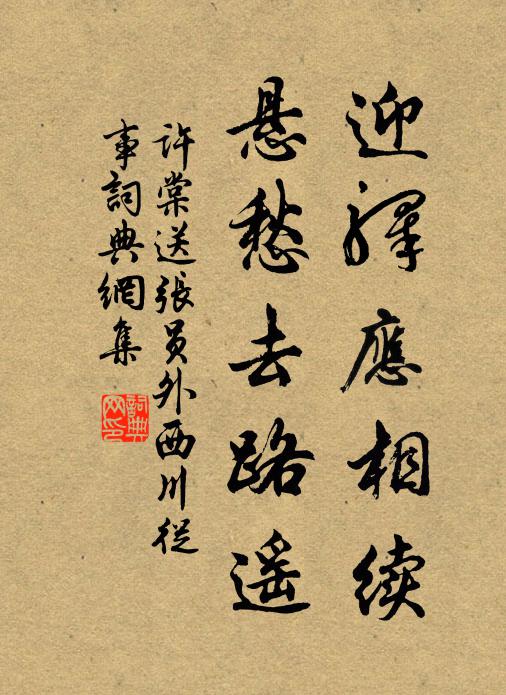 迎驛應相续
悬愁去路遥
許棠送張员外西川從
事詞典網集
詞典
网印